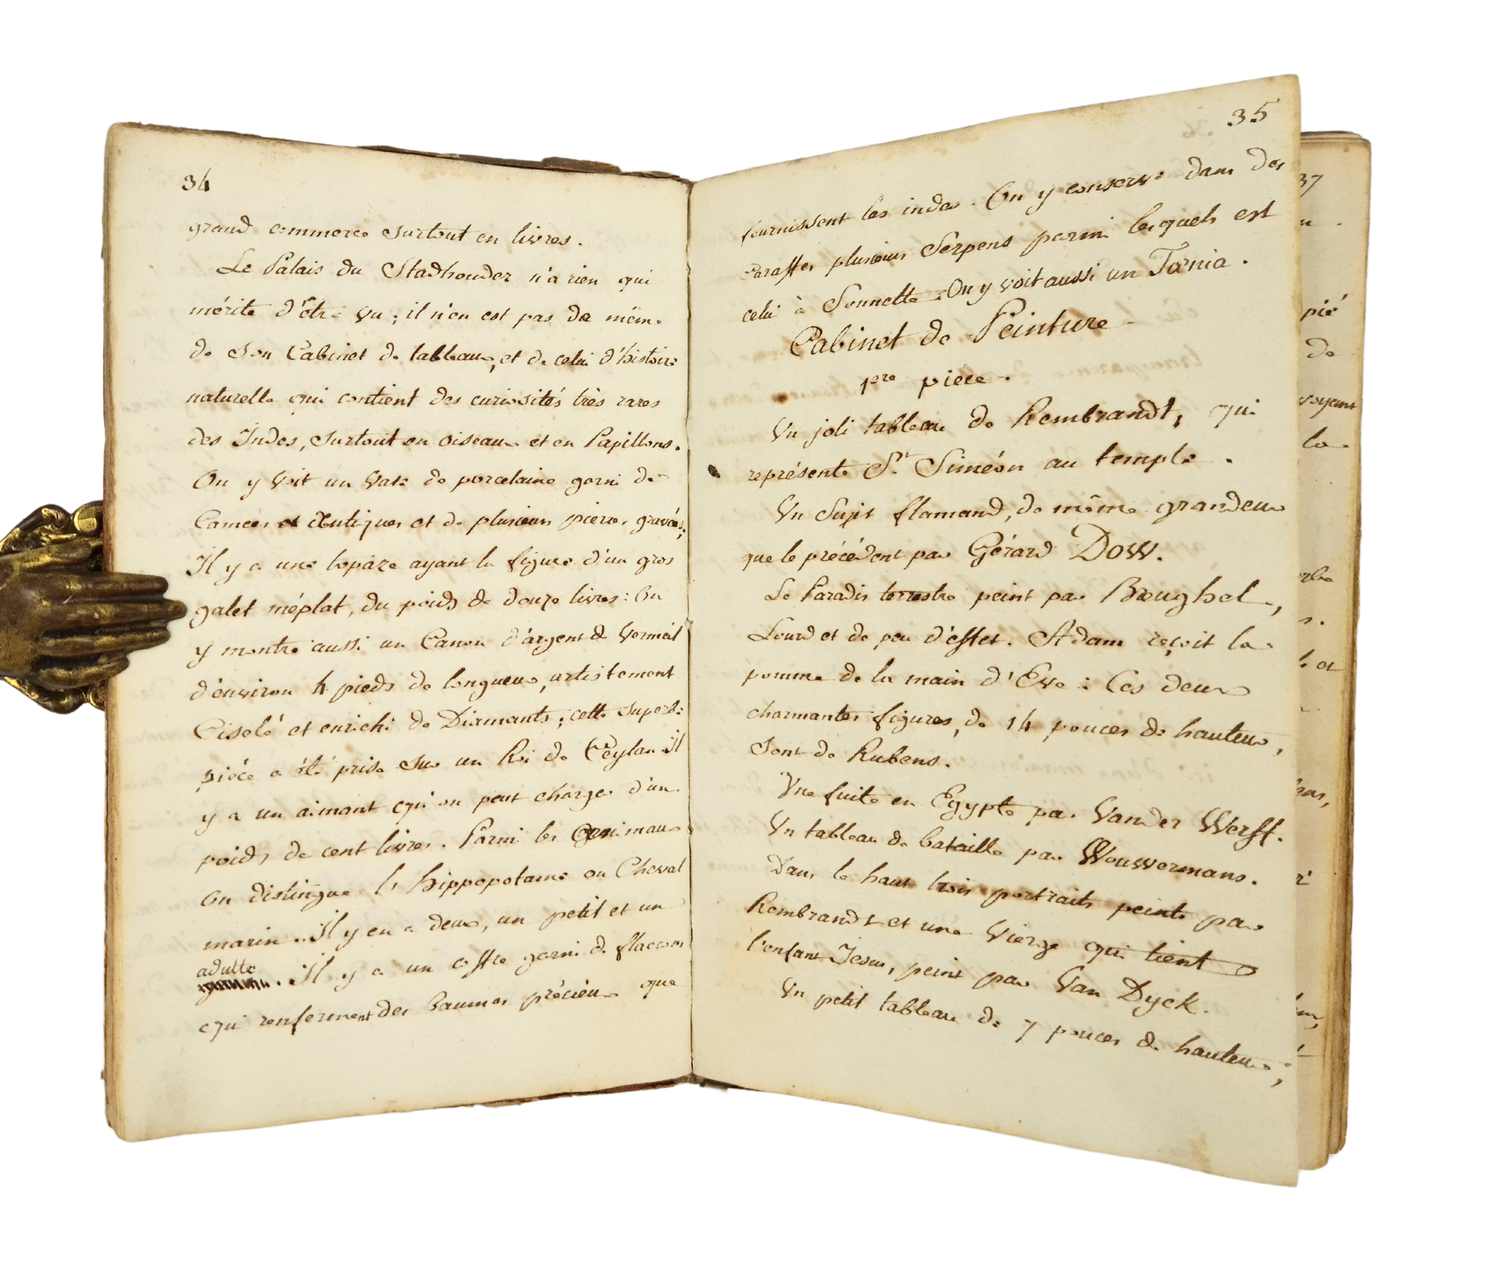 34
grand commerce surtout en livres.
Le Palais du Stadhouder n'a rien qui
mérite d'être vu ; il n'en est pas de même
de son Cabinet de tableaux, et de celui d'histoire
naturelle qui contient des curiosités très rares
des Indes, surtout en oiseaux et en Papillons.
On y voit un vase de porcelaine garni de
Camées et antiques et de plusieurs pierres gravées ;
Il y a une topaze ayant la figure d'un gros
galet méplat, du poids de douze livres : On
y montre aussi un Canon d'argent & vermeil
d'environ 4 pieds de longueur, artistement
Ciselé et enrichi de Diamants ; cette superbe
pièce a été prise sur un Roi de Ceylan Il
y a un aimant qu'on peut charger d'un
poids de cent livres. Parmi les animaux
on distingue l'hippopotame ou Cheval
marin. Il y en a deux, un petit et un
adulte
. Il y a un coffre garni de flacons
qui renferment des baumes précieux que
35
fournissent les indes. On y conserve dans des
caraffes plusieurs Serpens parmi lesquels est
celui à Sonnette. On y voit aussi un Tœnia.
Cabinet de Peinture
1ere piece.
Un joli tableau de Rembrandt, qui
représente St. Siméon au temple.
Un Sujet flamand, de même grandeur
que le précédent par Gérard Dow.
Le Paradis terrestre peint par Breughel,
Lourd et de peu d'effet. Adam reçoit la
pomme de la main d'Eve : Ces deux
charmantes figures, de 14 pouces de hauteur,
sont de Rubens.
Une fuite en Egypte par Vander Werff.
Un tableau de bataille par Wouwermans.
Dans le haut trois portraits peints par
Rembrandt et une Vierge qui tient
l'enfant Jesus, peint par Van Dyck.
Un petit tableau de 7 pouces de hauteur,
37
pié
de
voyant
la
et